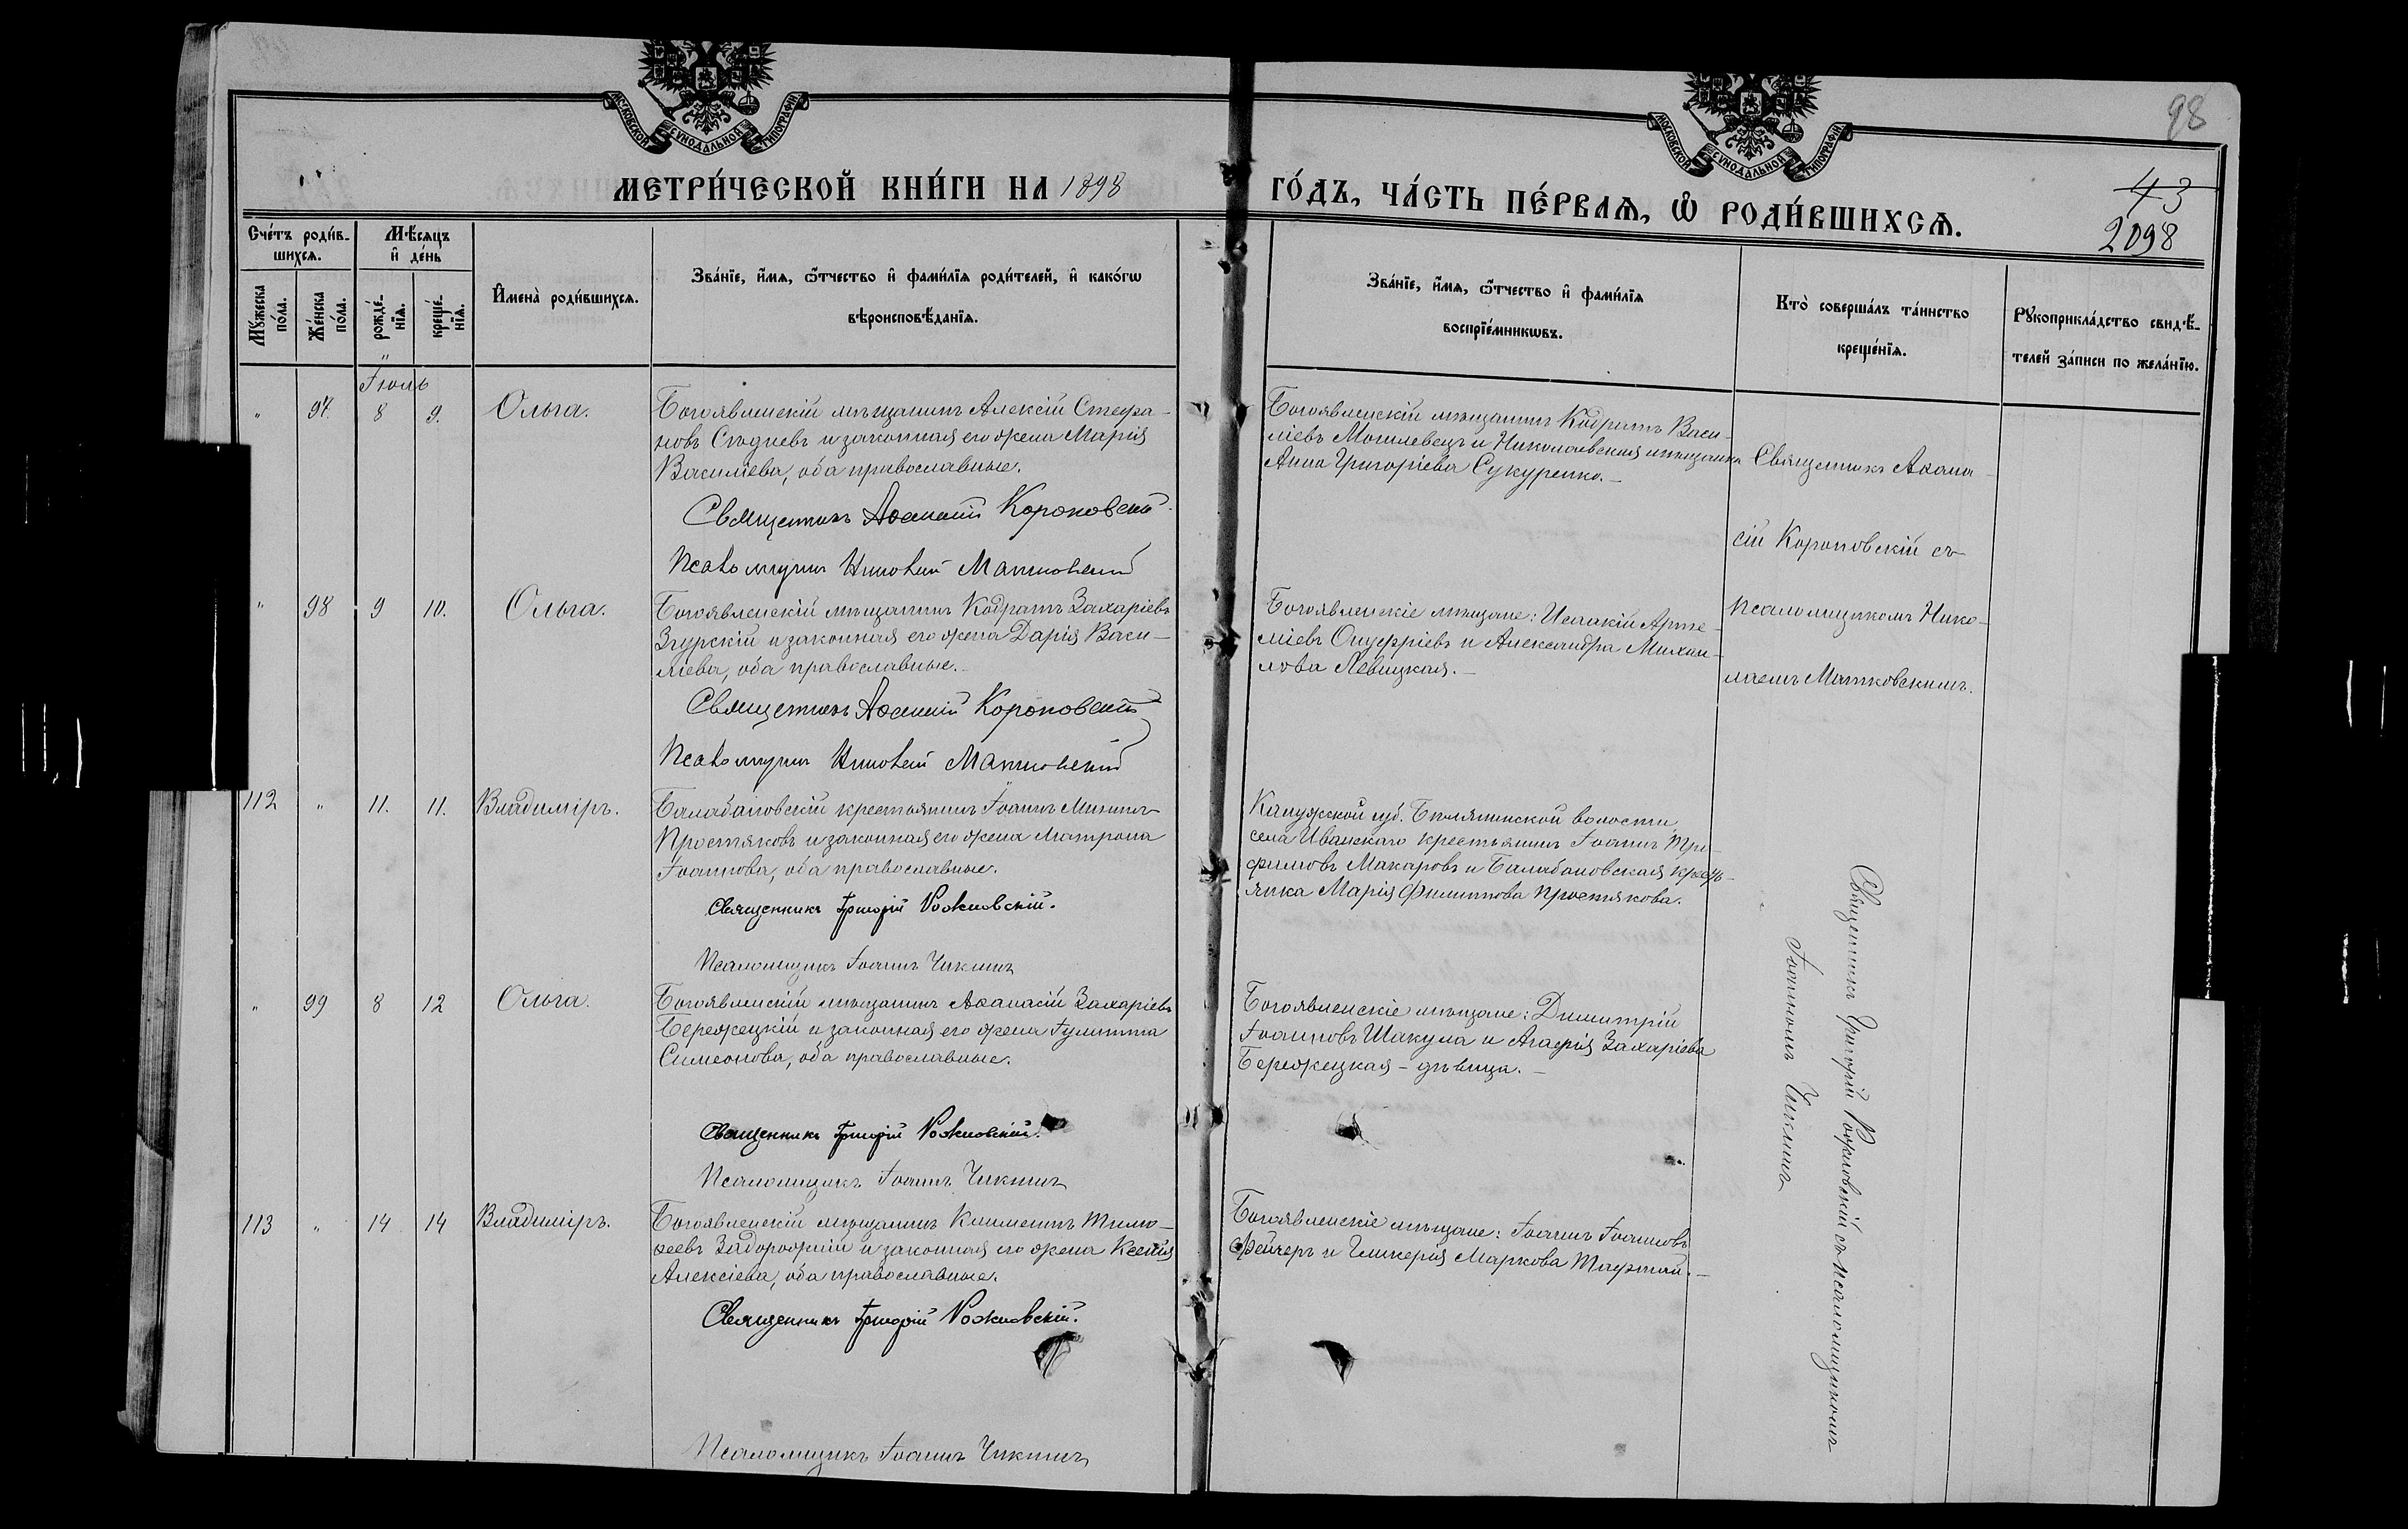 98
МОСКОВСКОЙ СѴНОДАЛЬНОЙ ТИПОГРАФІИ
МОСКОВСКОЙ СѴНОДАЛЬНОЙ ТИПОГРАФІИ
МЕТРИ́ЧЕСКОЙ КНИ́ГИ НА 1898
ГО́ДЪ, ЧА́СТЬ ПЕ́РВАЯ, Ѽ РОДИ́ВШИХСЯ.
43
2098
Сче́тъ роди́в-
шихся.
Мꙋ́жеска по́ла.
Же́нска по́ла.
Мѣ́сяцъ
и҆ де́нь
рожде́-
нїя.
креще́-
нїя.
И҆мена̀ роди́вшихся.
Зва́нїе, и҆́мя, ѻ҆́тчество и҆ фами́лїя роди́телей, и҆ како́гѡ
вѣроисповѣ́данїя.
Зва́нїе, и҆́мя, ѻ҆́тчество и҆ фами́лїя
воспрїе́мникѡвъ.
Кто̀ соверша́лъ та́инство
креще́нїя.
Рꙋкоприкла́дство свидѣ́-
телей за́писи по жела́нїю.
Іюль
" 97. 8 9. Ольга.
Богоявленскій мѣщанинъ Алексій Стефа-
новъ Сѣдневъ и законная его жена Марія
Василіева, оба православные.
Священникъ Аѳанасій Короповскій
Псаломщикъ Николай Матковскій
Богоявленскій мѣщанинъ Кодратъ Васи-
ліевъ Могилевецъ и Николаевская мѣщанка
Анна Григоріева Сукуренко.-
Священникъ Аѳана-
сій Короповскій съ
псаломщикомъ Нико-
лаемъ Матковскимъ.
" 98 9 10. Ольга.
Богоявленскій мѣщанинъ Кодратъ Захаріевъ
Згурскій и законная его жена Дарія Васи-
ліева, оба православные.
Священникъ Аѳанасій Короповскій
Псаломщикъ Николай Матковскій
Богоявленскіе мѣщане: Исаакій Арте-
міевъ Онуфріевъ и Александра Михаи-
лова Левицкая.-
112 " 11. 11. Владиміръ.
Балабановскій крестьянинъ Іоаннъ Мининъ
Простяковъ и законная его жена Матрона
Іоаннова, оба православные.
Священникъ Григорій Рожновскій.
Псаломщикъ Іоаннъ Чикнинъ
Калужской губ. волости,
села Иванскаго крестьянинъ Іоаннъ Три-
фоновъ Макаровъ и Балабановская крест-
янка Марія Филиппова Простякова.
Священникъ Григорій Рожновскій съ псаломщикомъ
Іоанномъ Чикнинъ
" 99 8 12 Ольга.
Богоявленскій мѣщанинъ Аѳанасій Захаріевъ
Бережецкій и законная его жена Іулитта
Симеонова, оба православные.
Священникъ Григорій Рожновскій.
Псаломщикъ Іоаннъ Чикнинъ
Богоявленскіе мѣщане: Димитрій
Іоанновъ Шакула и Агафія Захаріева
Бережецкая - дѣвица.-
113 " 14 14 Владиміръ.
Богоявленскій мѣщанинъ Климентъ Тимо-
ѳеевъ Задорожній и законная его жена Ксенія
Алексіева, оба православные.
Священникъ Григорій Рожновскій.
Псаломщикъ Іоаннъ Чикнинъ
Богоявленскіе мѣщане: Іоаннъ Іоанновъ
Фейчеръ и Гликерія Маркова